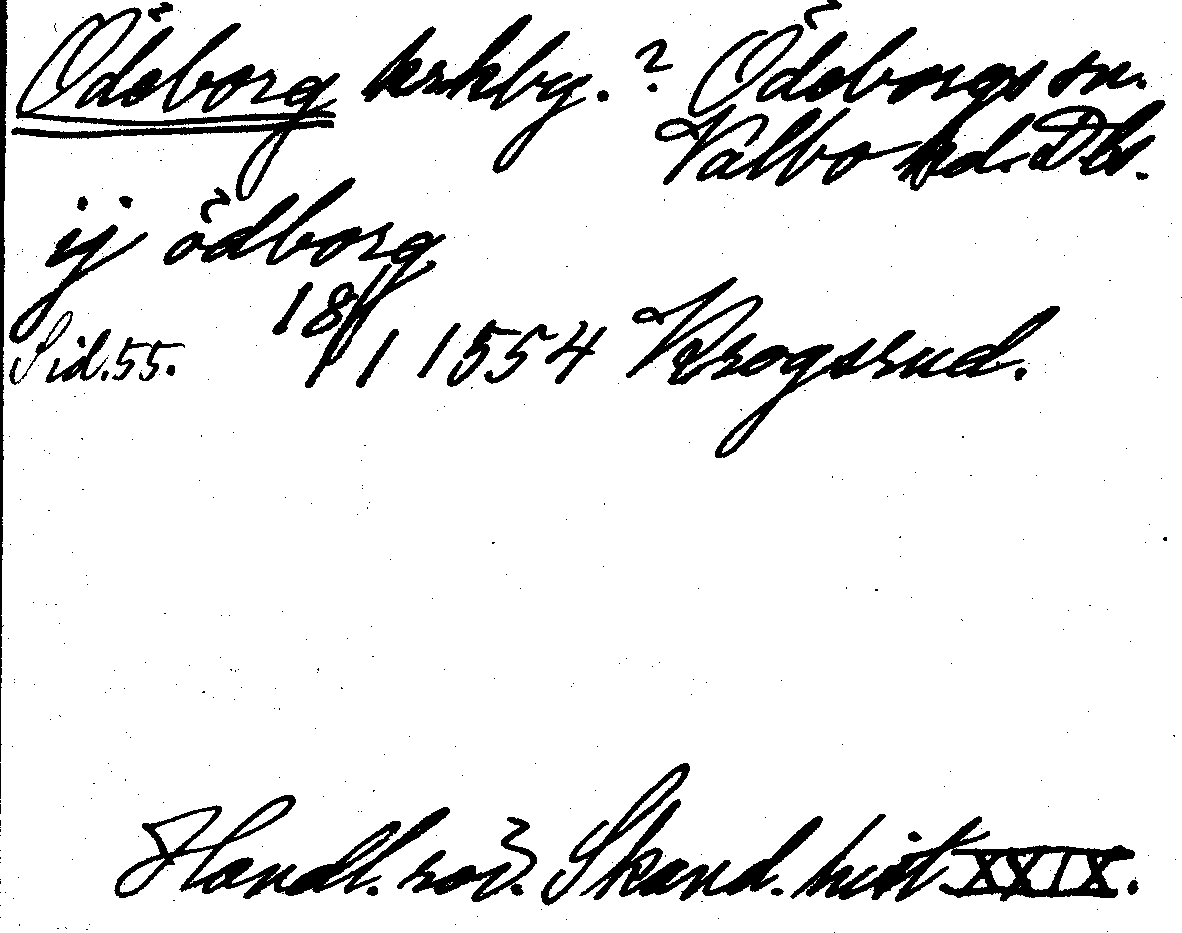 Ödeborg kyrkby.? Ödeborgs sn.
Valbo hd. Dls.
ij ödborg
Sid. 55. 18/1 1554 Krogsrud.
Handl. rör. Skand. hist XXIX.